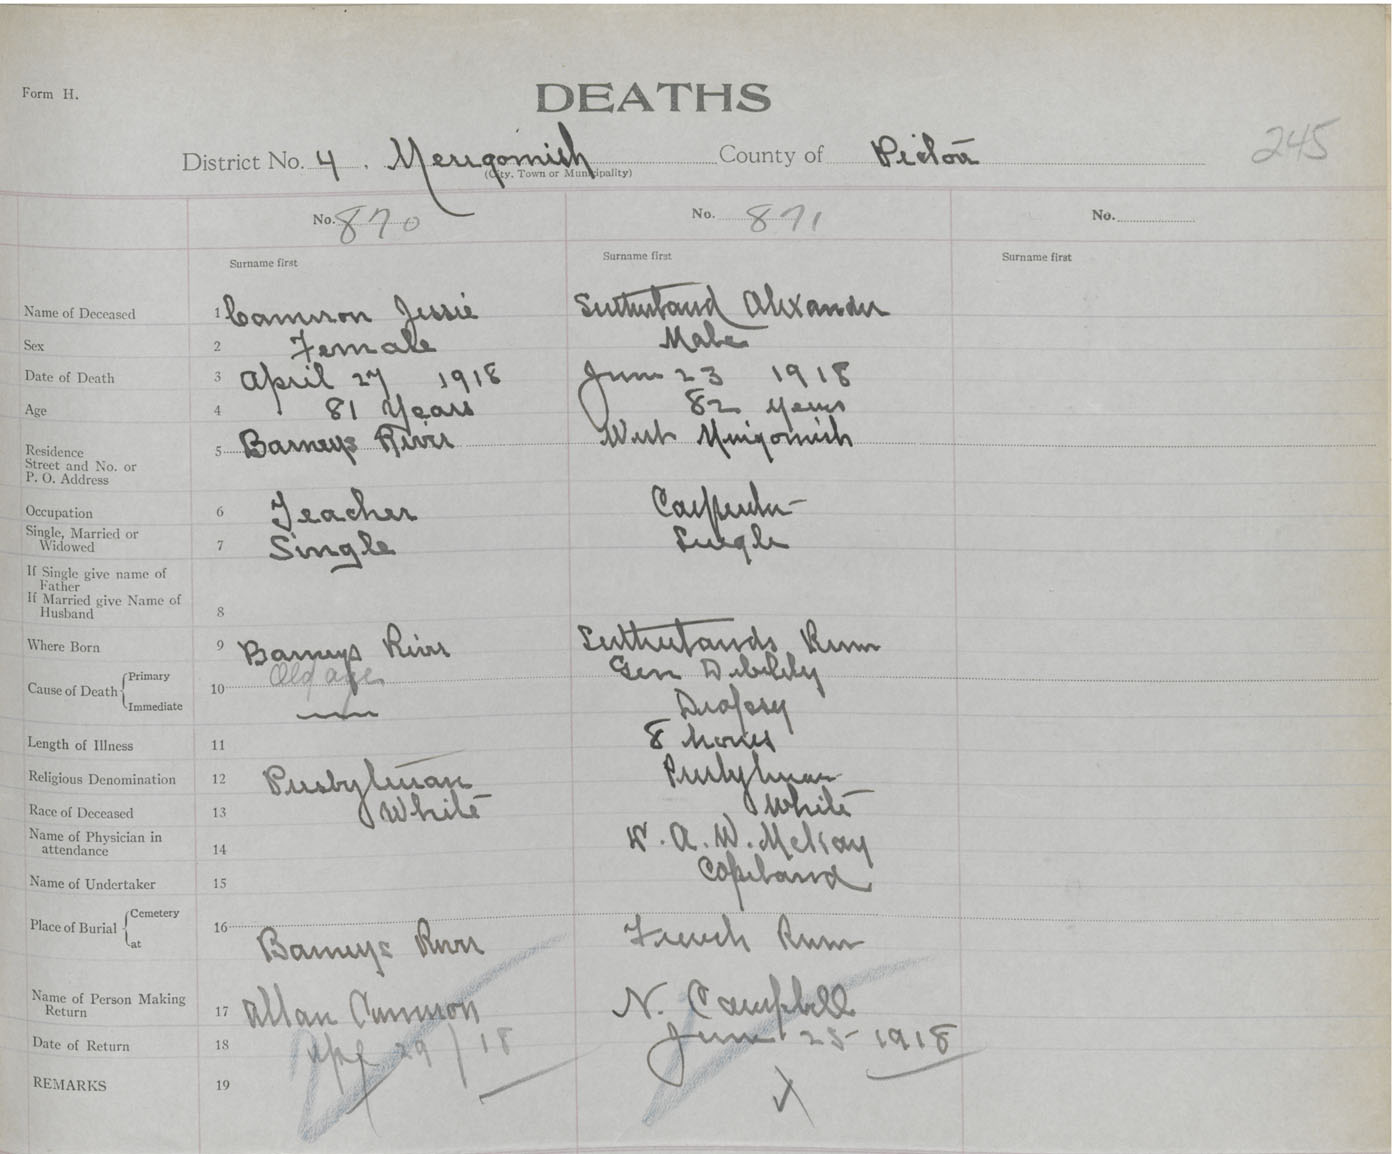 Form H.
DEATHS
District No. 4. Merigomish County of Pictou 245
(City, Town or Municipality)
No. 870 No. 871 No.
Surname first Surname first Surname first
Name of Deceased 1 Cameron Jessie Sutherland Alexander
Sex 2 Female Male
Date of Death 3 April 27 1918 June 23 1918
Age 4 81 Years 82 years
Residence
Street and No. or
P. O. Address
5 Barneys River West Merigomish
Occupation 6 Teacher Carpenter
Single, Married or
Widowed 7 Single Single
If Single give name of
Father
If Married give Name of
Husband 8
Where Born 9 Barneys River Sutherlands River
Cause of Death Primary
Immediate
10 Old age Gen Debility
Dropsy
Length of Illness 11 8 hours
Religious Denomination 12 Presbyterian Presbyterian
Race of Deceased 13 White White
Name of Physician in
attendance 14 W. A. W. McKay
Name of Undertaker 15 Copeland
Place of Burial Cemetery
at
16 Barneys River French River
Name of Person Making
Return 17 Allan Cameron N. Campbell
Date of Return 18 Apl 29/18 June 25 1918
REMARKS 19